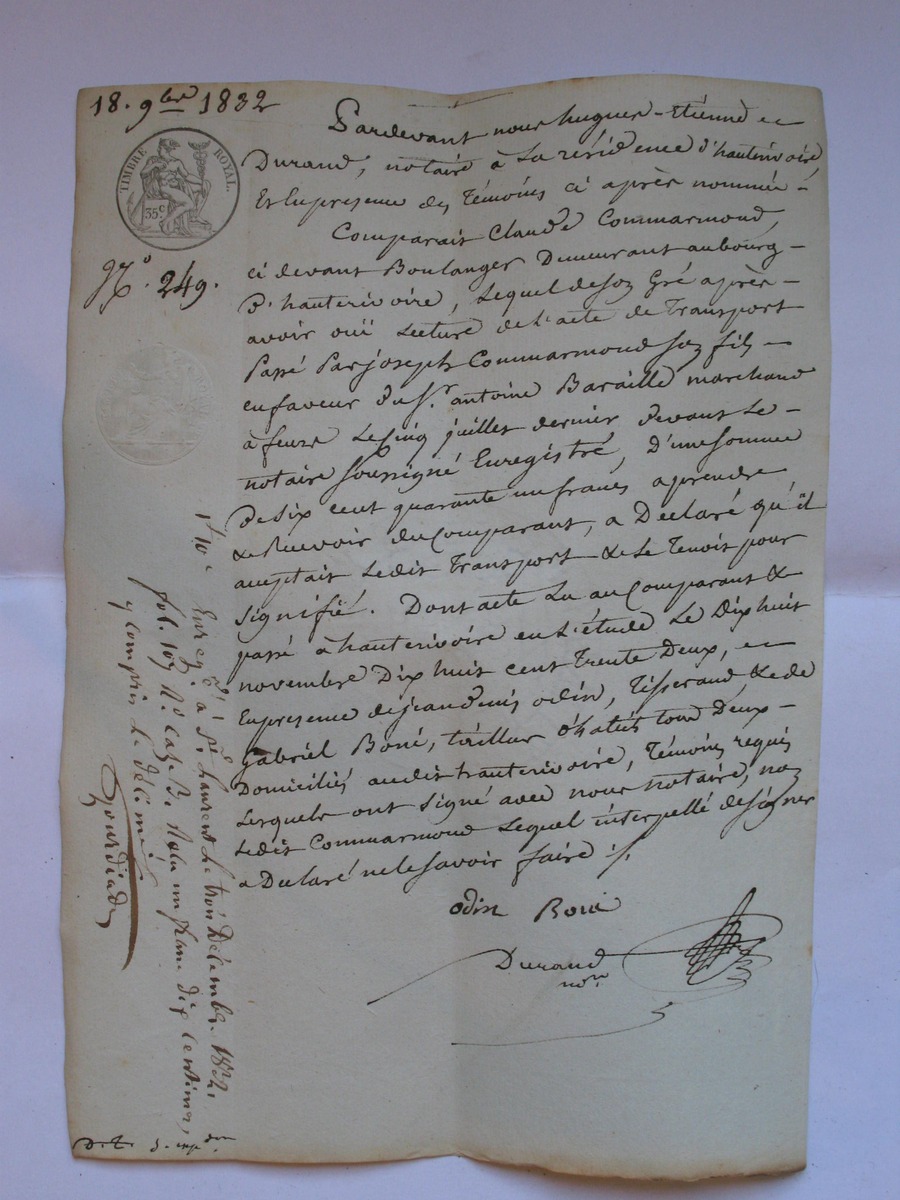 18. 9bre 1832
TIMBRE ROYAL.
35c
No. 249.
Pardevant nous hugues-Etienne
Durand, notaire à La résidence d'hauterivoire,
Et Enpresence des Témoins ci après nommés
Comparait Claude Commarmond,
ci devant Boulanger Demeurant aubourg
D'hauterivoire, Lequel deson Gré après
avoir ouï Lecture de l'acte de Transport
Passé Par joseph Commarmond son fils
enfaveur du Sr. antoine Baraille marchand
à feurs Le Cinq juillet dernier devant Le
notaire soussigné Enregistré, D'une somme
De Six cent quarante un francs aprendre
& Recevoir du Comparant, a Déclaré qu'il
acceptait Ledit Transport & Le Tenoit pour
Signifié. Dont acte Lu au Comparant &
passé à hauterivoire en L'étude Le Dix huit
novembre Dix huit cent Trente Deux,
Enpresence de jean Denis odin, Tisserand, & de
Gabriel Boné, tailleur d'habits tous Deux
Domiciliés audit hauterivoire, Témoins requis
Lesquels ont signé avec nous notaire, non
Ledit Commarmond Lequel interpellé de signer
a Déclaré ne le savoir faire ./.
odin Boné
Durand
nore
Enregé à St. Laurent le trois Décembre 1832.
fol. 107 Ro Caze B. Reçu un franc dix centimes,
y compris le décime
Gourdiade
D. T. 5. expdon